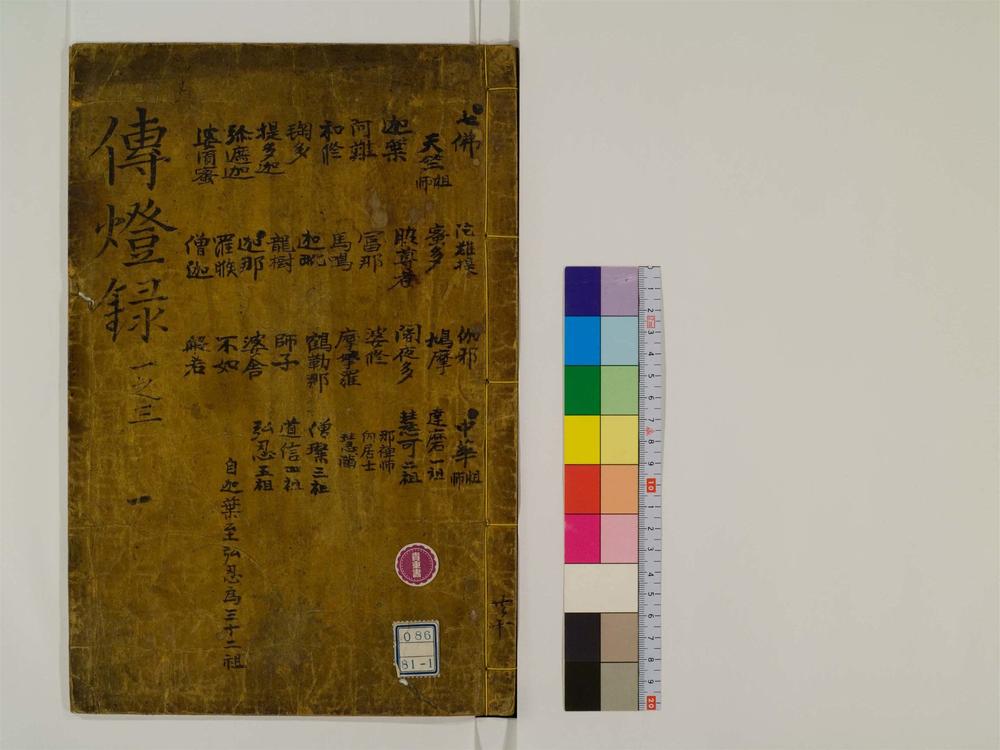 傳燈錄 一之三
一
七佛
天竺祖師
迦葉
阿難
和修
毱多
提多迦
弥遮迦
婆須蜜
陀難提
蜜多
脇尊者
冨那
馬鳴
迦毗
龍樹
迦那
羅睺
僧迦
伽邪
鳩摩
闍夜多
婆修
摩拏羅
鶴勒那
師子
婆舍
不如
般若
中華祖師
達磨一祖
慧可二祖
那禅師
向居士
慧滿
僧璨三祖
道信四祖
弘忍五祖
自迦葉至弘忍爲三十二祖
貴重書
086
81-1